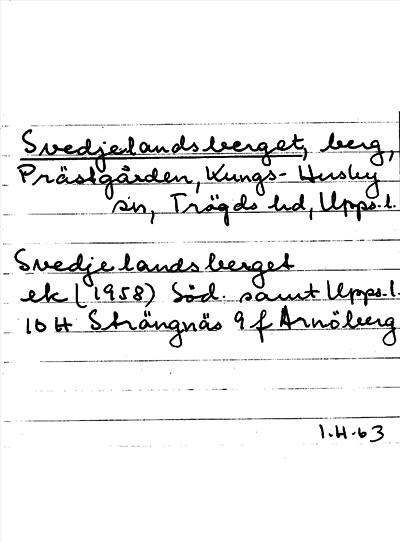 Svedjelandsberget, berg,
Prästgården, Kungs-Husby
sn, Trögds hd, Upps.l.
Svedjelandsberget
ek (1958) Söd. samt Upps.l.
10 H Strängnäs 9 f Arnöberg
1.H.63